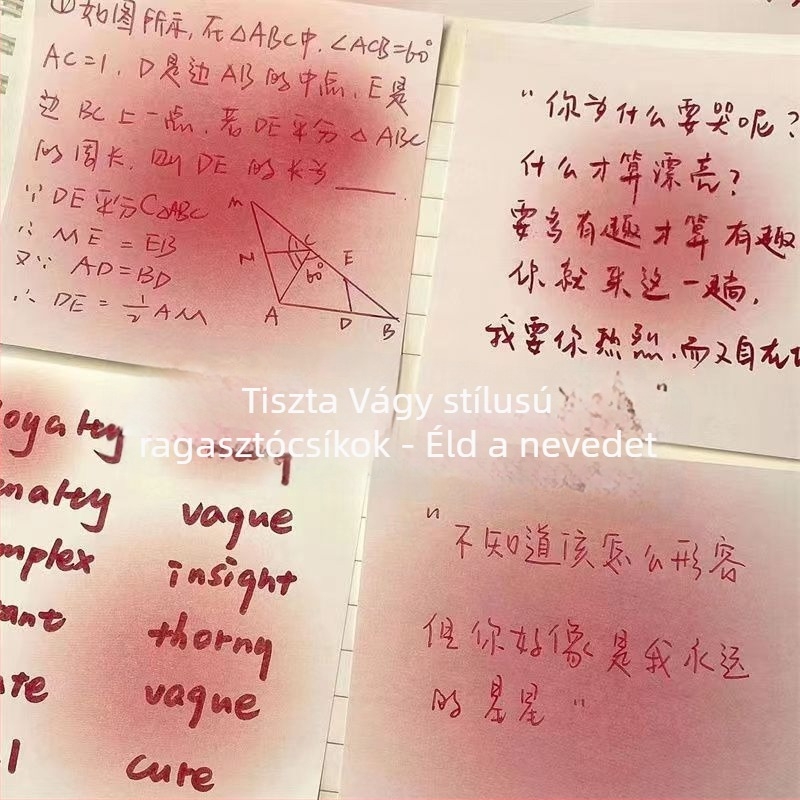 ①如图所示,在△ABC中,∠ACB=60°
AC=1,D是边AB的中点,E是
边BC上一点,若DE平分△ABC
的周长,则DE的长为____
∵DE平分C△ABC
∴ME=EB
又∵AD=BD
∴DE=½AM
M
N
C
60°
E
A
D
B
"你为什么要哭呢?
什么才算漂亮?
要多有趣才算有趣
你就来这一趟,
我要你热烈,而又自在
"
Tiszta Vágy stílusú
ragasztócsíkok - Éld a nevedet
vague
insight
thorny
vague
cure
"不知道该怎么形容
但你好像是我永远
的星星"